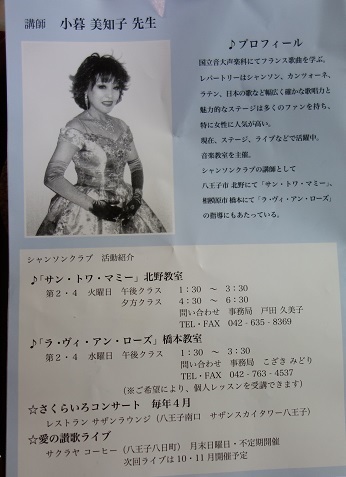 講師　小暮 美知子 先生
♪プロフィール
国立音大声楽科にてフランス歌曲を学ぶ。
レパートリーはシャンソン、カンツォーネ、
ラテン、日本の歌など幅広く確かな歌唱力と
魅力的なステージは多くのファンを持ち、
特に女性に人気が高い。
現在、ステージ、ライブなどで活躍中。
音楽教室を主催。
シャンソンクラブの講師として
八王子市 北野にて「サン・トワ・マミー」、
相模原市 橋本にて「ラ・ヴィ・アン・ローズ」
の指導にもあたっている。
シャンソンクラブ　活動紹介
♪「サン・トワ・マミー」北野教室
第２・４　火曜日　午後クラス　１：３０　～　３：３０
夕方クラス　４：３０　～　６：３０
問い合わせ　事務局　戸田 久美子
TEL・FAX　042 - 635 - 8369
♪「ラ・ヴィ・アン・ローズ」橋本教室
第２・４　水曜日　午後クラス　１：３０　～　３：３０
問い合わせ　事務局　こざき みどり
TEL・FAX　042 - 763 - 4537
（※ご希望により、個人レッスンを受講できます）
☆さくらいろコンサート　毎年４月
レストラン サザンラウンジ（八王子南口　サザンスカイタワー八王子）
☆愛の讃歌ライブ
サクラヤ コーヒー（八王子八日町）　月末日曜日・不定期開催
次回ライブは10・11月開催予定